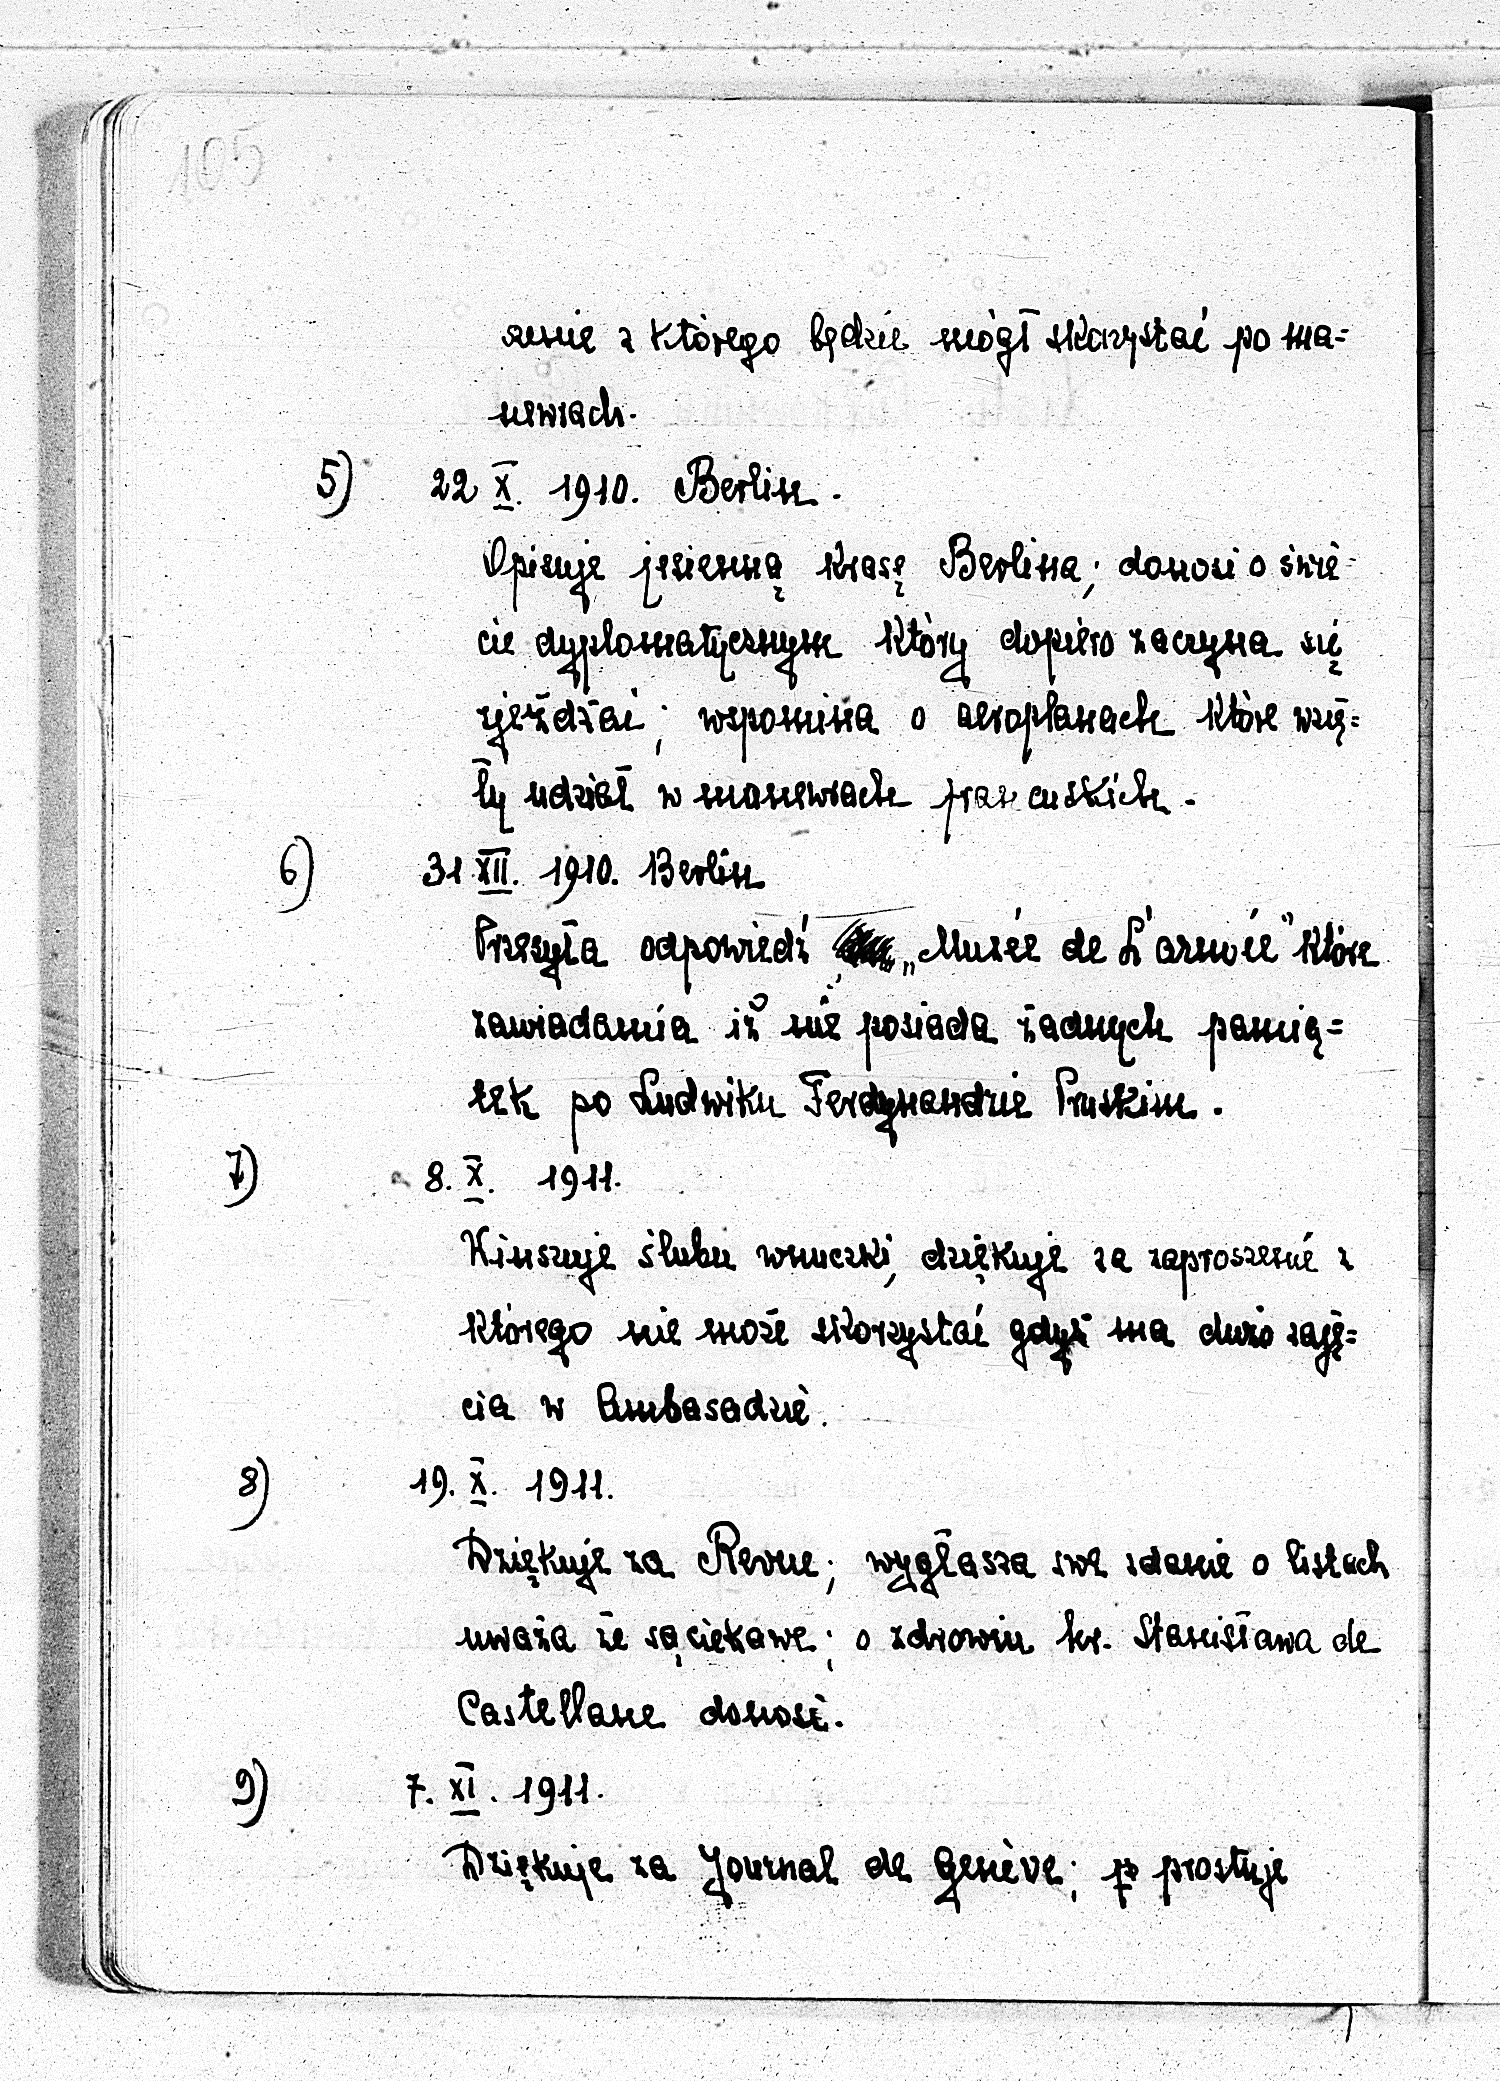 105
szenie z którego będzie mógł skorzystać po ma=
newrach.
5) 22 X. 1910. Berlin.
Opisuje jesienną krasę Berlina; donosi o świe-
cie dyplomatycznym który dopiero zaczyna się
zjeżdżać; wspomina o aeroplanach które wzię=
ły udział w manewrach francuskich.
6) 31 XII. 1910. Berlin
Przesyła odpowiedź „Musée de L'armée" które
zawiadamia iż nie posiada żadnych pamią=
tek po Ludwiku Ferdynandzie Pruskim.
7) 8. X. 1911.
Winszuje ślubu wnuczki, dziękuje za zaproszenie z
którego nie może skorzystać gdyż ma dużo zaję=
cia w Ambasadzie.
8) 19. X. 1911.
Dziękuje za Revue; wygłasza swe zdanie o listach
uważa że są ciekawe; o zdrowiu hr. Stanisława de
Castellane donosi.
9) 7. XI. 1911.
Dziękuje za Journal de Genève; prostuje